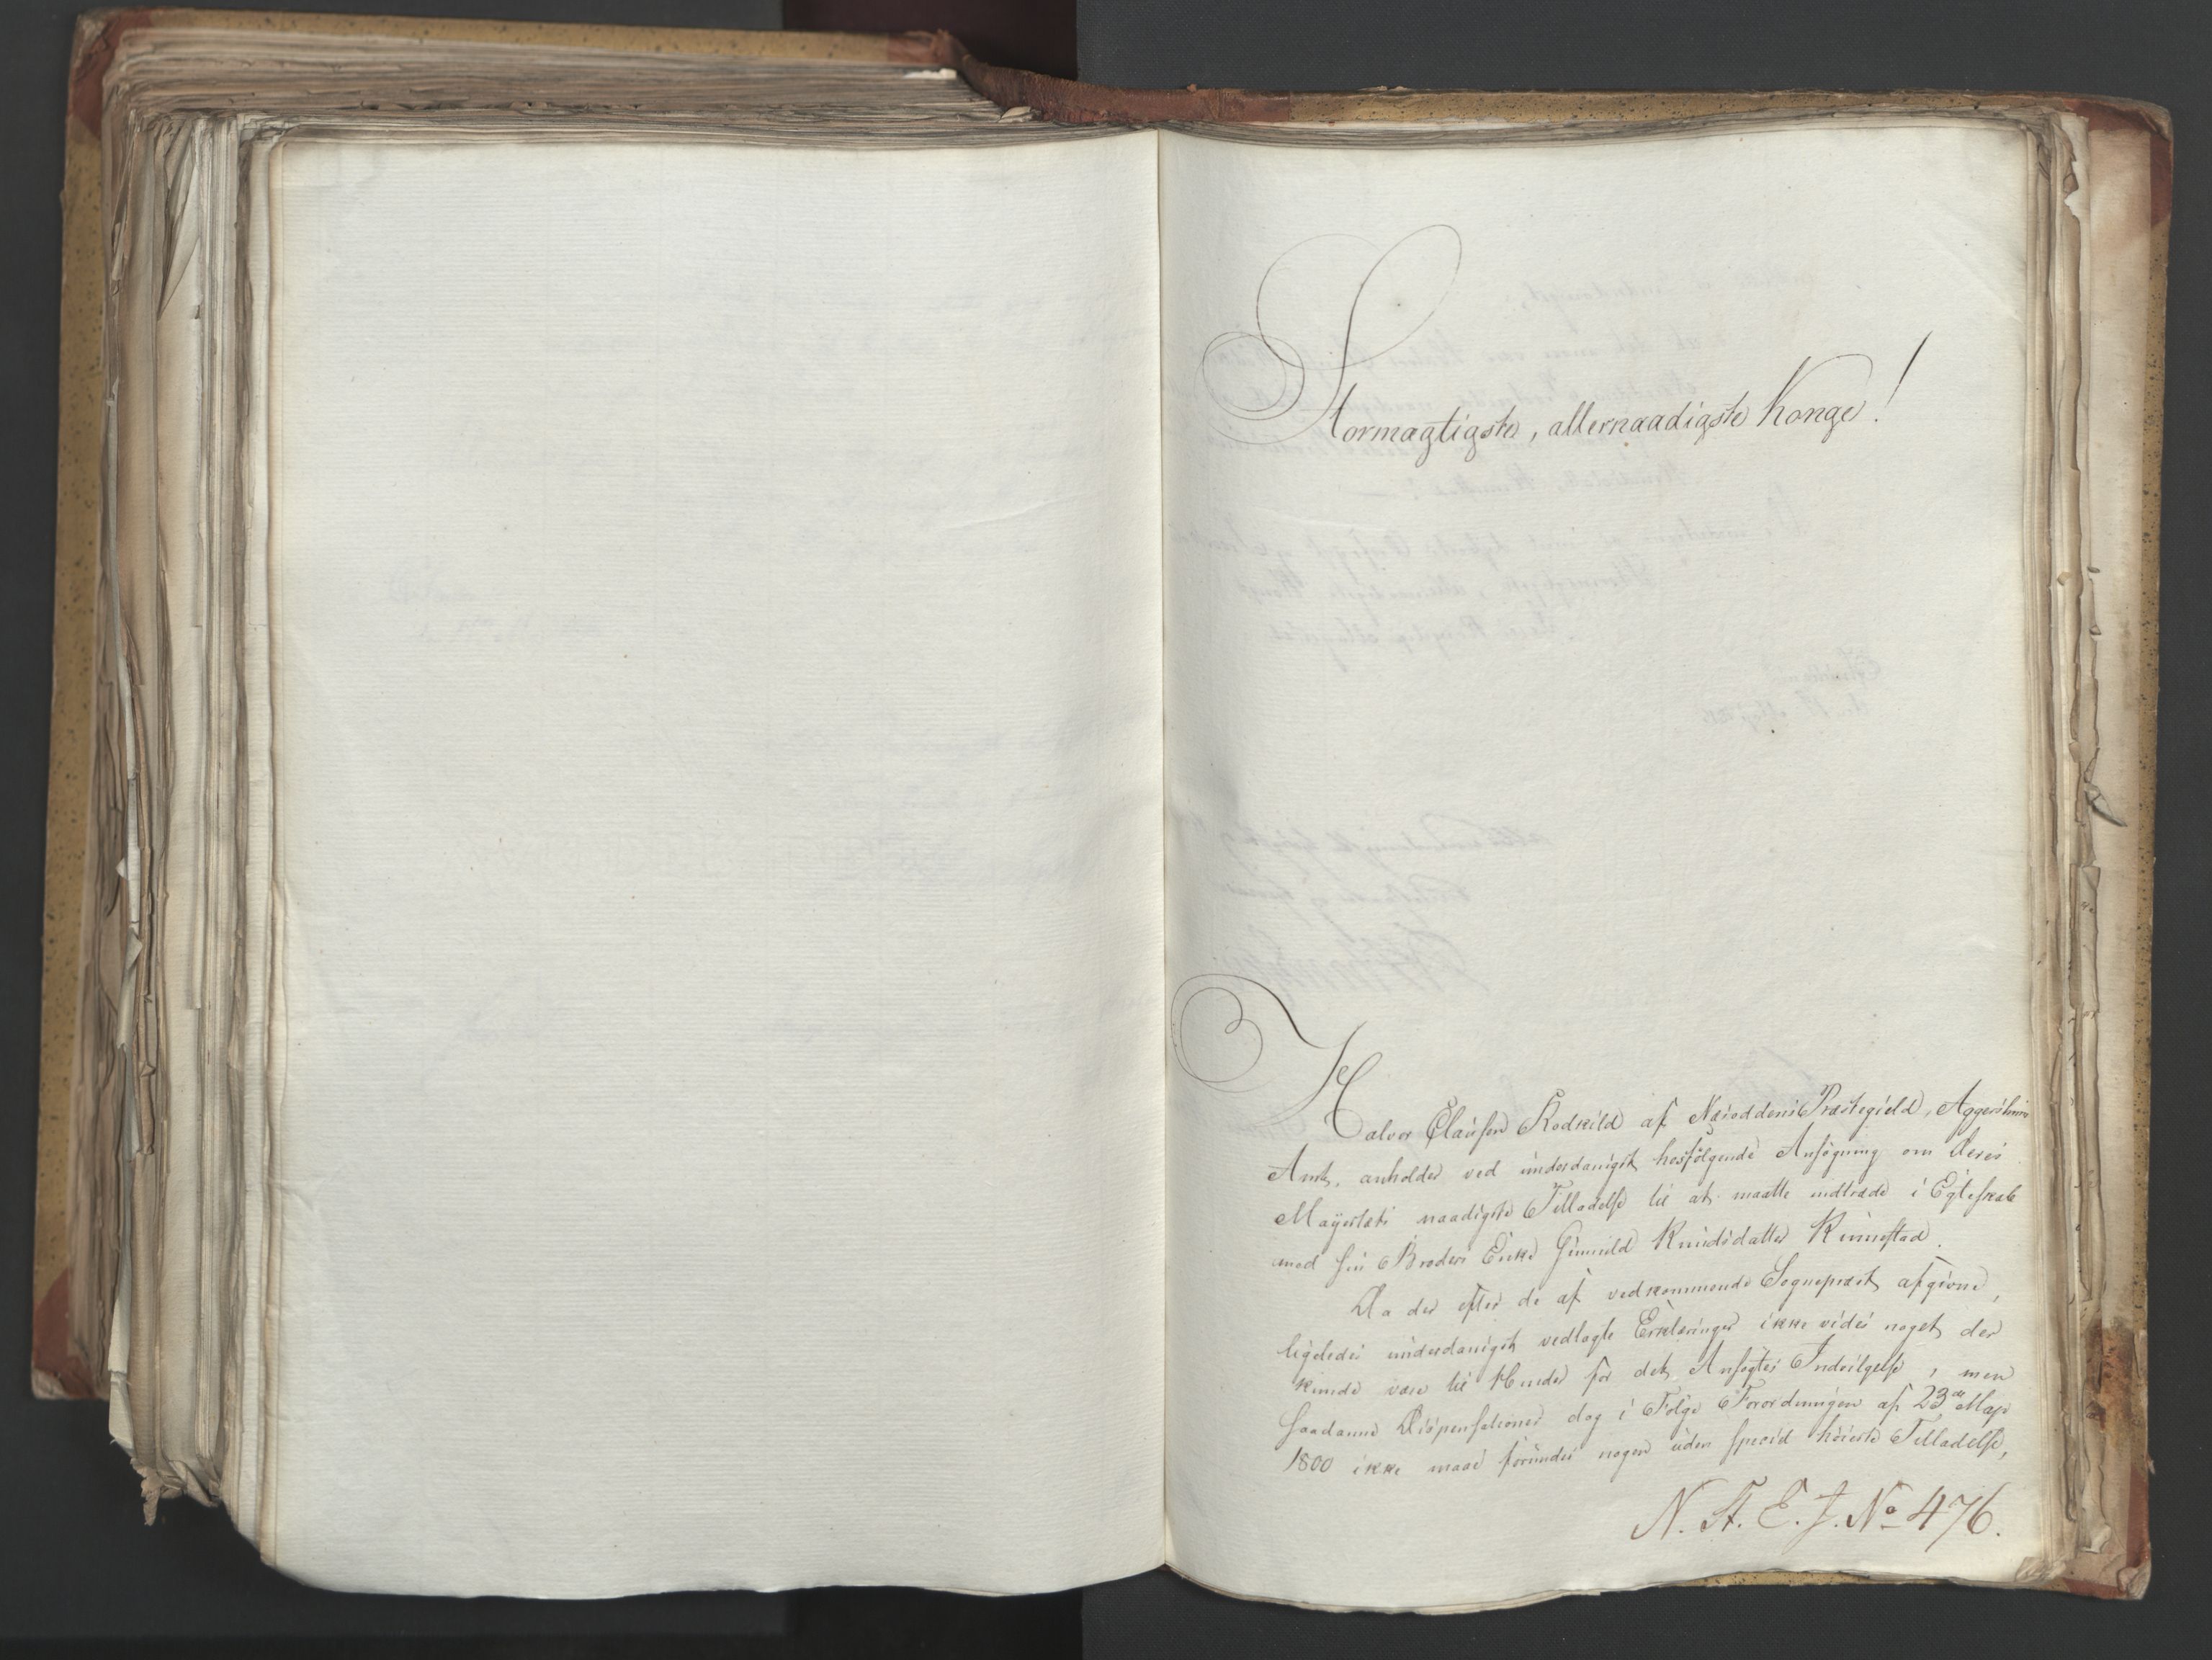 Stormægtigste, allernaadigste Konge!
Halvor Clausen Rodkild af Næsoddens Præstegield, Aggershuus
Amt, anholder ved underdanigst hosfølgende Ansøgning om Deres
Mayestæts naadigste Tilladelse til at maatte indtræde i Egteskab
med sin Broders Enke Gunnild Knudsdatter Kinnestad.
Da der efter de af vedkommende Sognepræst afgivne,
ligeledes underdanigst vedlagte Erklæringer ikke vides noget der
kunde være til Hinder for det Ansøgtes Indvilgelse, men
saadanne Dispensationer dog i Følge Forordningen af 23de May
1800 ikke maae forundes nogen uden speciel høieste Tilladelse,
N. St. E. J. No 476.